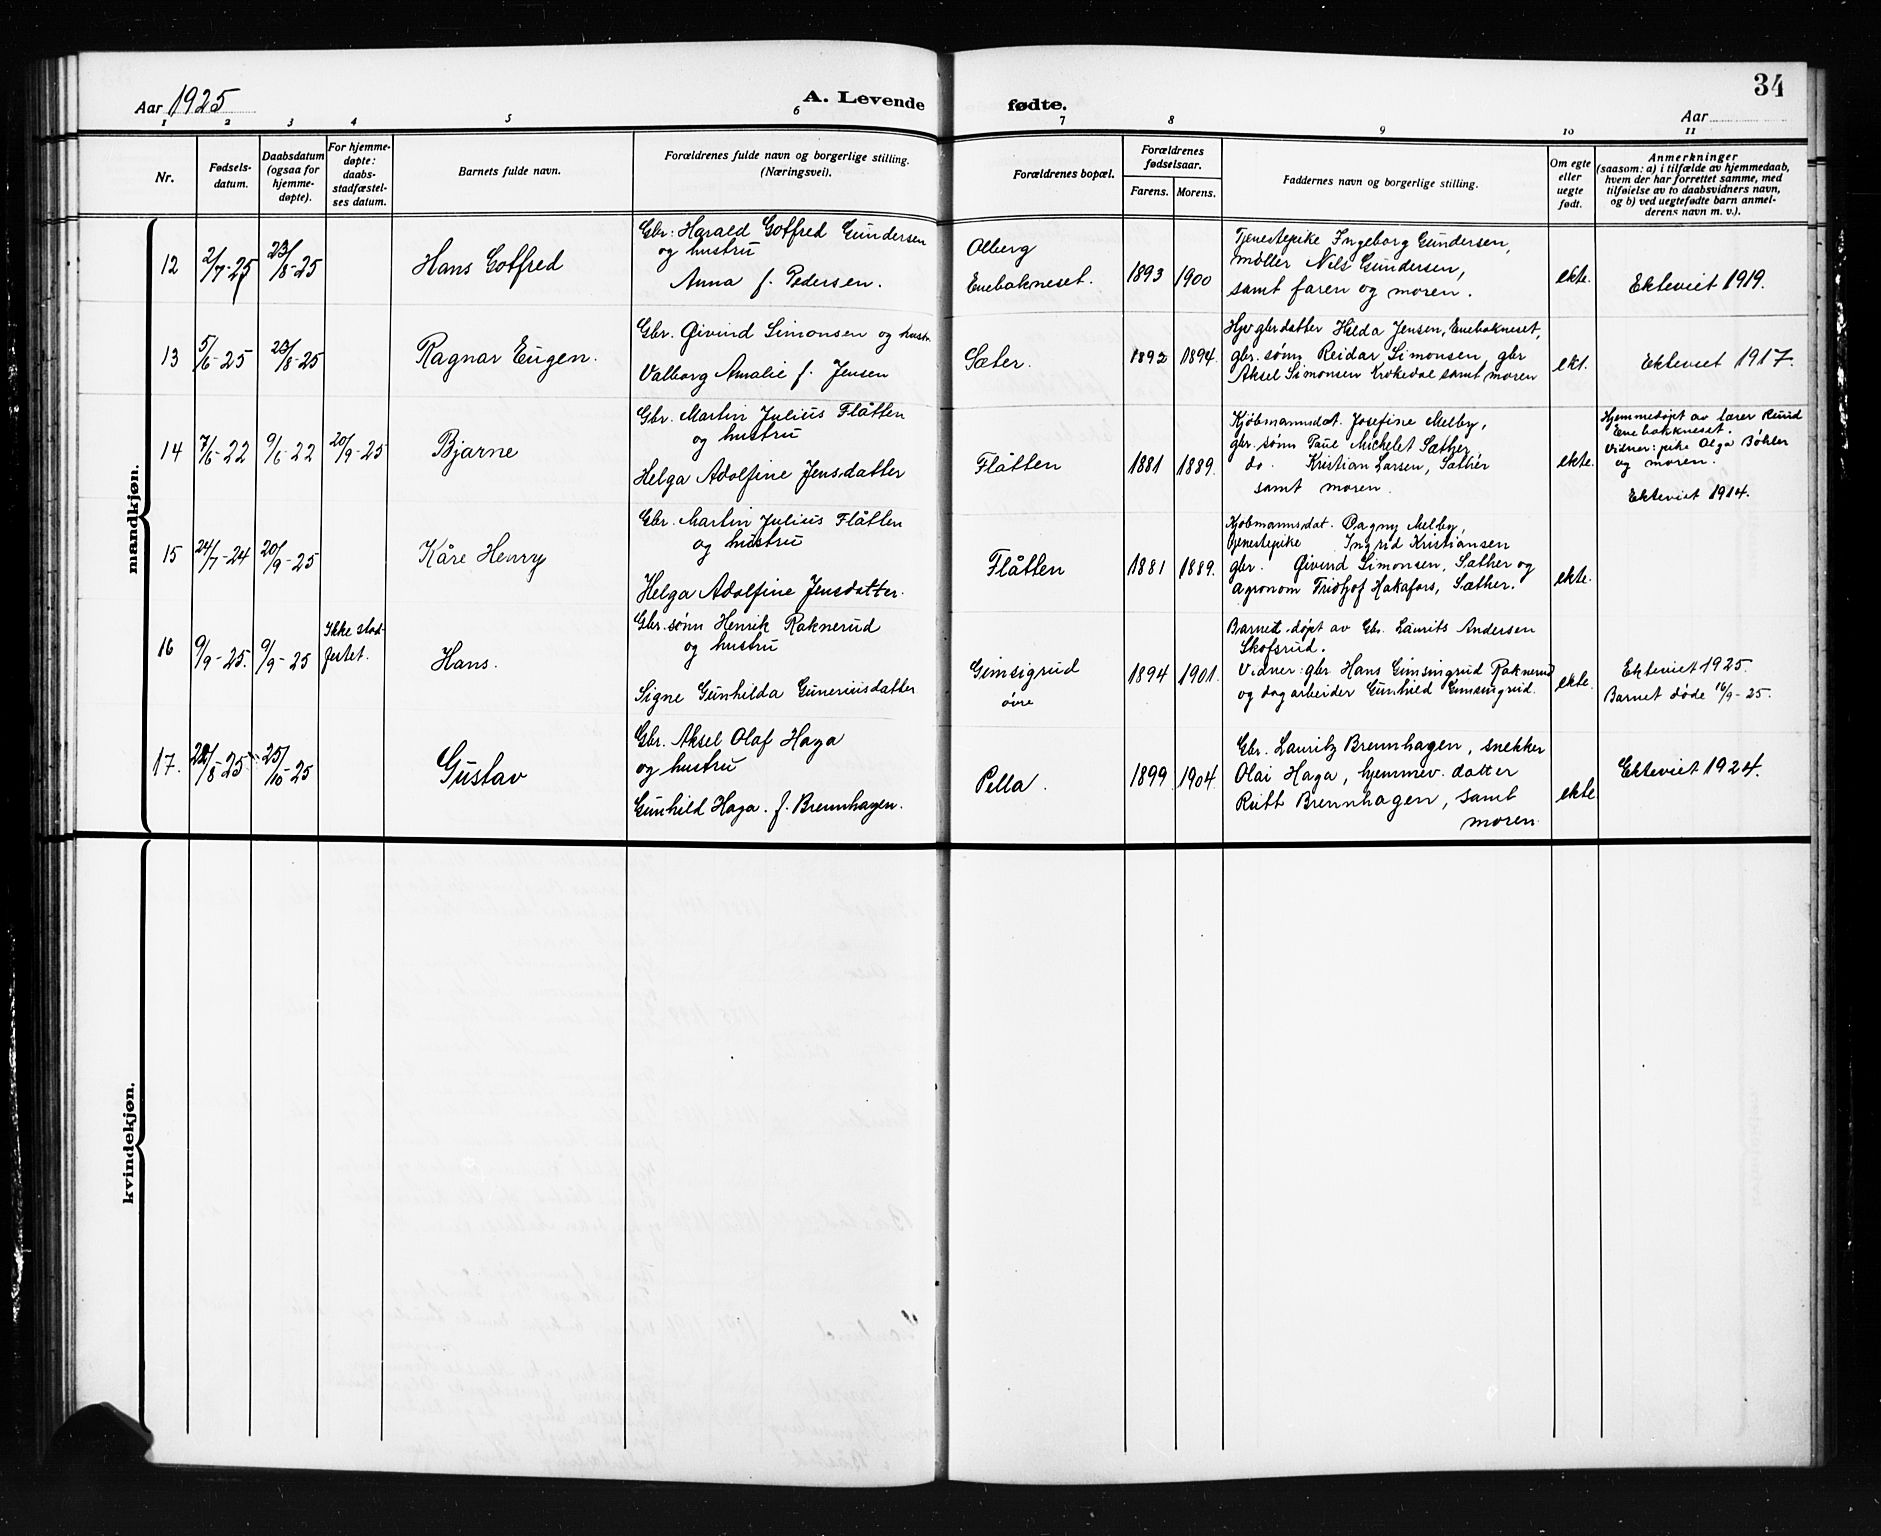 Aar 1925
A. Levende fødte.
34
Aar
1 2 3 4 5 6 7 8 9 10 11
Nr.
Fødsels-
datum.
Daabsdatum
(ogsaa for
hjemme-
døpte).
For hjemme-
døpte:
daabs-
stadfæstel-
ses datum.
Barnets fulde navn.
Forældrenes fulde navn og borgerlige stilling.
(Næringsvei).
Forældrenes bopæl.
Forældrenes
fødselsaar.
Farens. Morens.
Faddernes navn og borgerlige stilling.
Om egte
eller
uegte
født.
Anmerkninger
(saasom: a) i tilfælde av hjemmedaab,
hvem der har forrettet samme, med
tilføielse av to daabsvidners navn,
og b) ved uegtefødte barn anmel-
derens navn m. v.).
mandkjøn.
12
2/7-25
23/8-25
Hans Gotfred
Gbr. Harald Gotfred Gundersen
og hustru
Anna f. Pedersen.
Olberg
Enebakneset.
1893 1900
Tjenestepike Ingeborg Gundersen,
møller Nils Gundersen,
samt faren og moren.
ekte.
Ekteviet 1919.
13
5/6-25
23/8-25
Ragnar Eugen.
Gbr. Øivind Simonsen og hustr.
Valborg Amalie f. Jensen
Sæter.
1892 1894.
Hjv gbrdatter Hilda Jensen, Enebakneset,
gbr. sønn Reidar Simonsen, gbr
Aksel Simonsen Krokedal samt moren
ekt.
Ekteviet 1917.
14
7/6-22
9/6-22
20/9-25
Bjarne
Gbr. Martin Julius Flåtten
og hustru
Helga Adolfine Jensdatter
Flåtten
1881 1889.
Kjøbmannsdat. Josefine Melby,
gbr. sønn Paul Michelet Sæther
do. Kristian Larsen, Sæthér
samt moren.
ekte.
Hjemmedøpt av lærer Ruud
Enebakkneset.
Vidner: pike Olga Bøhler
og moren.
Ekteviet 1914.
15
24/7-24
20/9-25
Kåre Henry
Gbr. Martin Julius Flåtten
og hustru
Helga Adolfine Jensdatter.
Flåtten
1881 1889.
Kjøbmannsdat. Dagny Melby,
tjenestepike Ingrid Kristiansen
gbr. Øivind Simonsen, Sæther og
agronom Fridtjof Hakafors, Sæther.
ekte.
16
9/9-25.
9/9-25
Ikke stad-
festet.
Hans.
Gbr. sønn Henrik Raknerud
og hustru
Signe Gunhilda Guneriusdatter
Gimsigrud
øvre
1894 1901.
Barnet døpt av Gbr. Laurits Andersen
Skofsrud.
Vidner: gbr. Hans Gimsingrud Raknerud
og dagarbeider Gunhild Gimsingrud.
ekte.
Ekteviet 1925.
Barnet døde 16/9-25.
17.
22/8-25
25/10-25
Gustav
Gbr. Aksel Olaf Haga
og hustru
Gunhild Haga. f. Brennhagen.
Pella.
1899 1904.
Gbr. Lauritz Brennhagen, snekker
Olai Haga, hjemmev. datter
Rutt Brennhagen, samt
moren
ekte
Ekteviet 1924.
kvindekjøn.